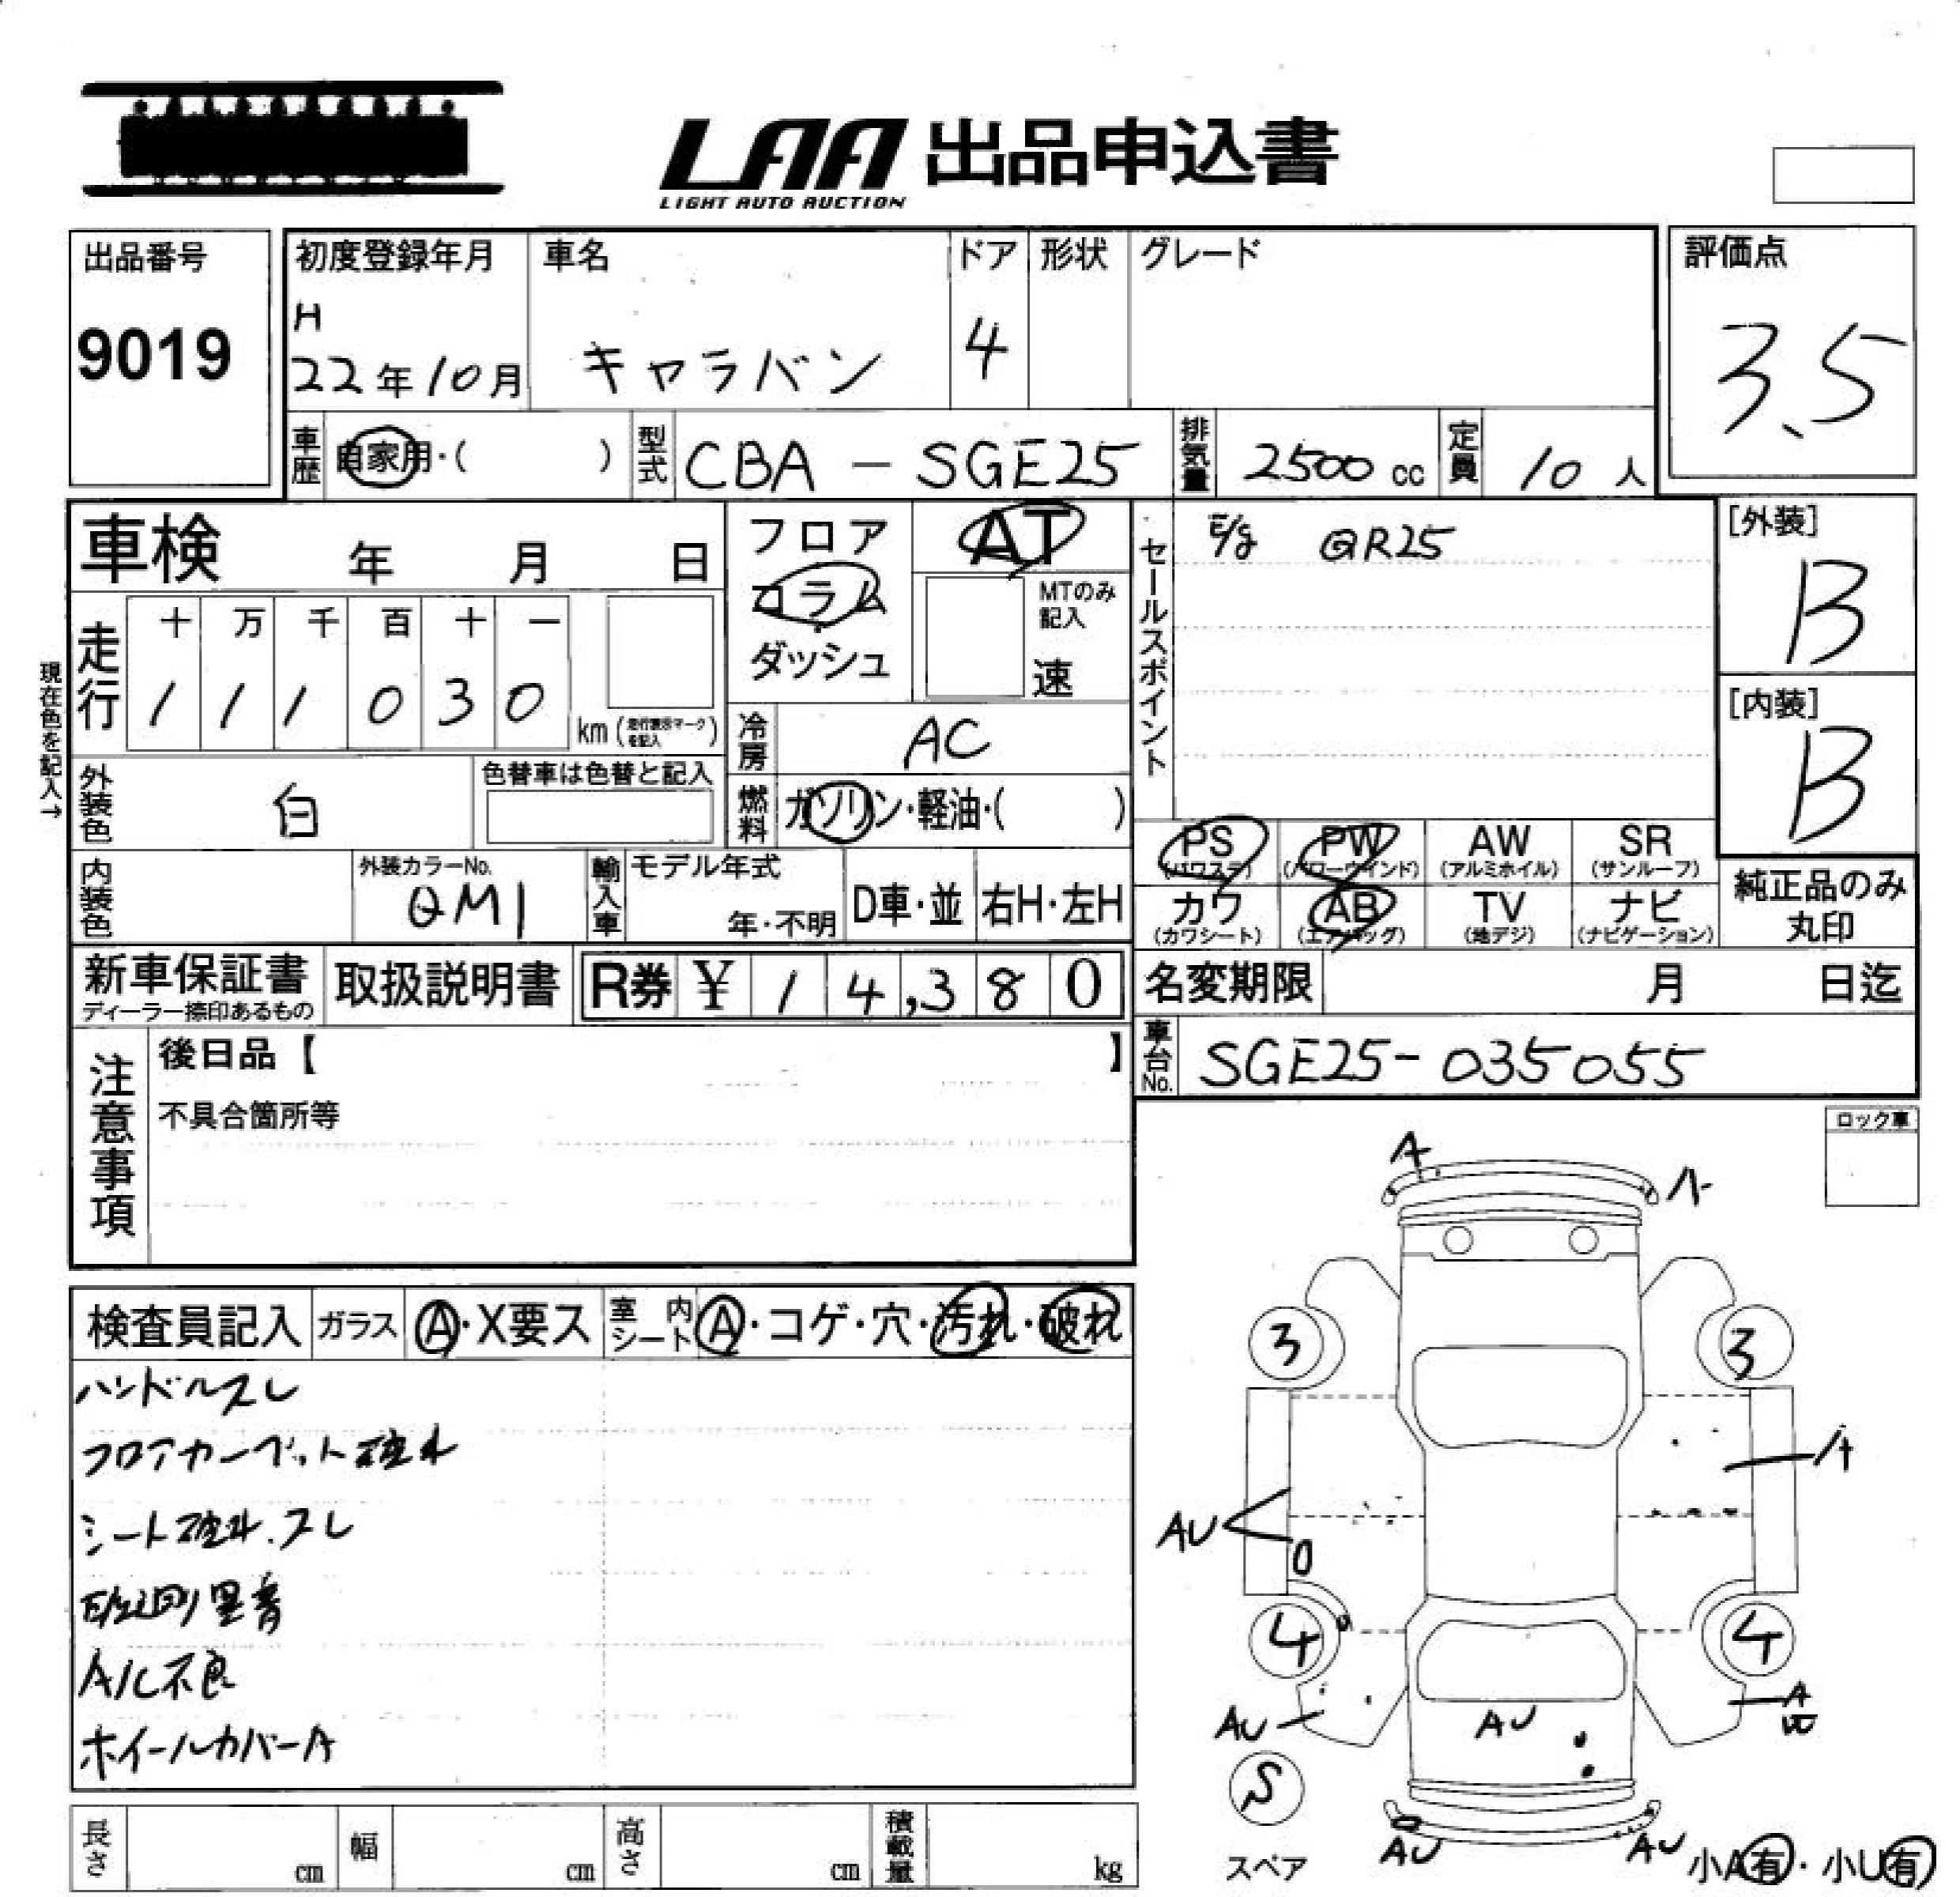 LAA 出品申込書
LIGHT AUTO AUCTION
出品番号 初度登録年月 車名 ドア 形状 グレード 評価点
9019 H 22年10月 キャラバン 4 3.5
車歴 自家用・( ) 型式 CBA-SGE25 排気量 2500 cc 定員 10 人
車検 年 月 日 フロア AT セールスポイント E/g QR25 [外装]
コラム MTのみ記入 B
ダッシュ 速
走行 十 万 千 百 十 一
1 1 1 0 3 0 km (走行表示マークを記入)
現在色を記入→
冷房 AC [内装]
外装色 白 色替車は色替と記入 燃料 ガソリン・軽油・( ) B
PS (パワステ) PW (パワーウインド) AW (アルミホイル) SR (サンルーフ)
内装色 外装カラーNo. QM1 輸入車 モデル年式 年・不明 D車・並 右H・左H
カワ (カワシート) AB (エアバッグ) TV (地デジ) ナビ (ナビゲーション) 純正品のみ丸印
新車保証書 取扱説明書 R券 ¥ 14,380 名変期限 月 日迄
ディーラー捺印あるもの
車台No. SGE25-035055
注意事項 後日品【 】
不具合箇所等
ロック車
検査員記入 ガラス A・X要ス 室内シート A・コゲ・穴・汚れ・破れ
ハンドルスレ
フロアカーペット破れ
シート破れ.スレ
E/g廻り異音
A/C不良
ホイールカバーA
A A
3 3
A
AU
4 4
AU AU A
S
スペア AU AU 小A有・小U有
長さ cm 幅 cm 高さ cm 積載量 kg